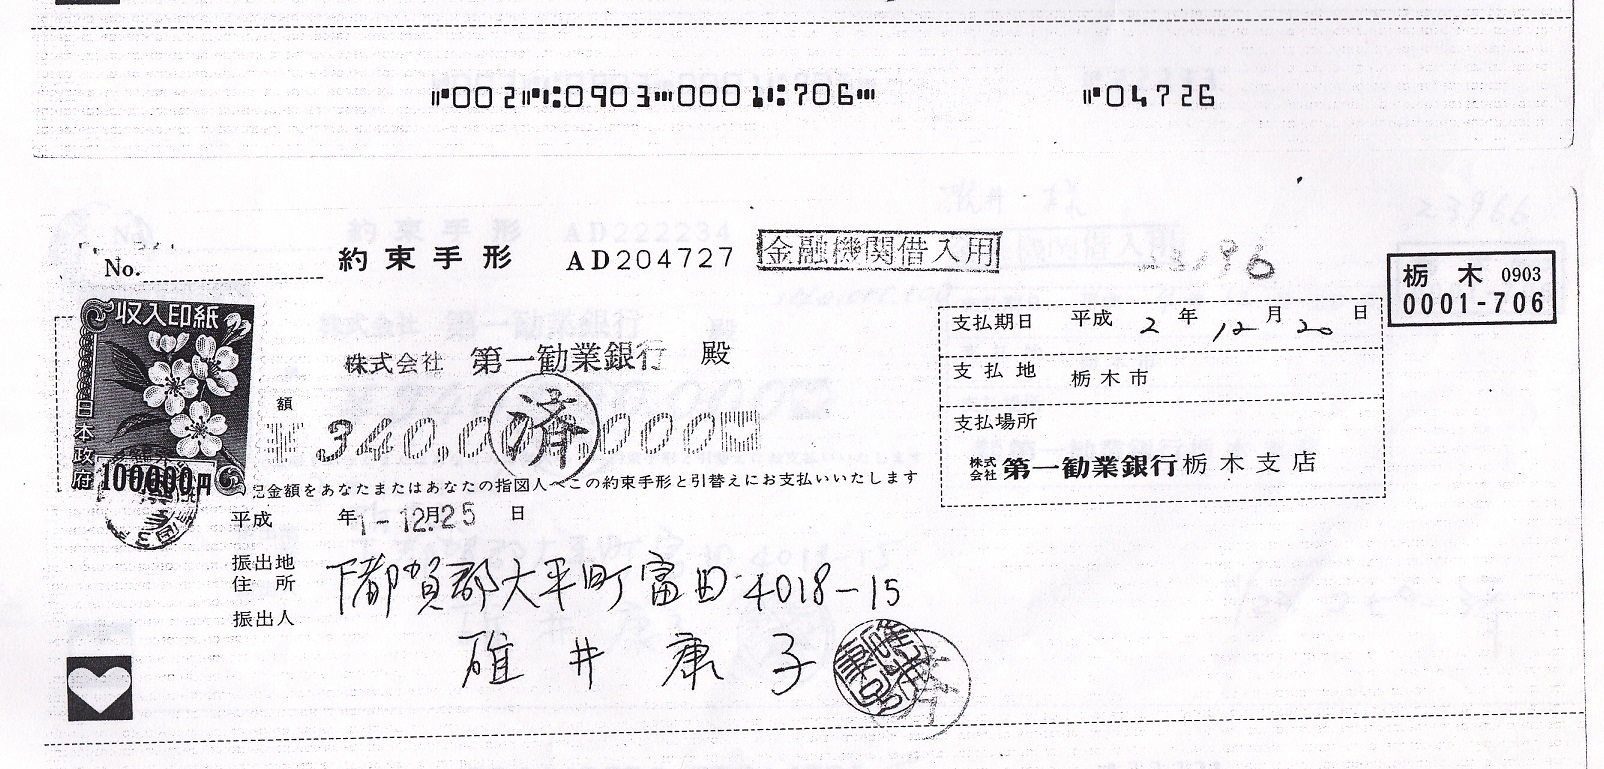 002 0903 0001 706 04726
No. 約束手形 AD204727 金融機関借入用
栃木 0903
0001-706
収入印紙
日本政府
100000円
株式会社 第一勧業銀行 殿
額
¥340,000,000
済
記金額をあなたまたはあなたの指図人へこの約束手形と引替えにお支払いいたします
平成 年 1-12月25 日
振出地
住所
下都賀郡大平町富田4018-15
振出人
碓井康子
支払期日 平成 2 年 12 月 20 日
支払地 栃木市
支払場所
株式会社 第一勧業銀行栃木支店